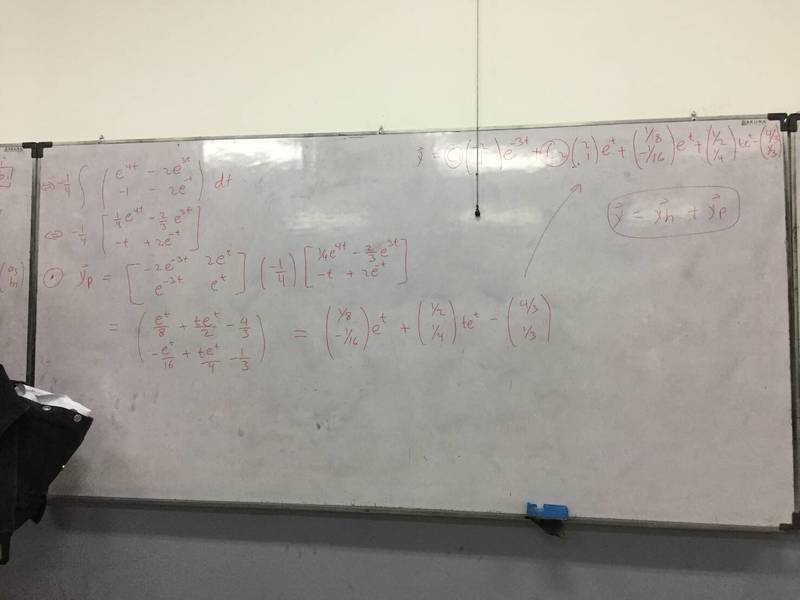 y⃗ = C₁(-2 1)e^-3t + C₂(2 1)e^t + (1/8 -1/16)e^t + (1/2 1/4)te^t - (4/3 1/3)
⇔ -1/4 ∫ (e^4t - 2e^3t
-1 - 2e^-t) dt
⇔ -1/4 [1/4 e^4t - 2/3 e^3t
-t + 2e^-t]
y⃗ = y⃗h + y⃗p
• y⃗p = [-2e^-3t 2e^t
e^-3t e^t] (-1/4) [1/4 e^4t - 2/3 e^3t
-t + 2e^-t]
= (e^t/8 + te^t/2 - 4/3
-e^t/16 + te^t/4 - 1/3) = (1/8 -1/16)e^t + (1/2 1/4)te^t - (4/3 1/3)